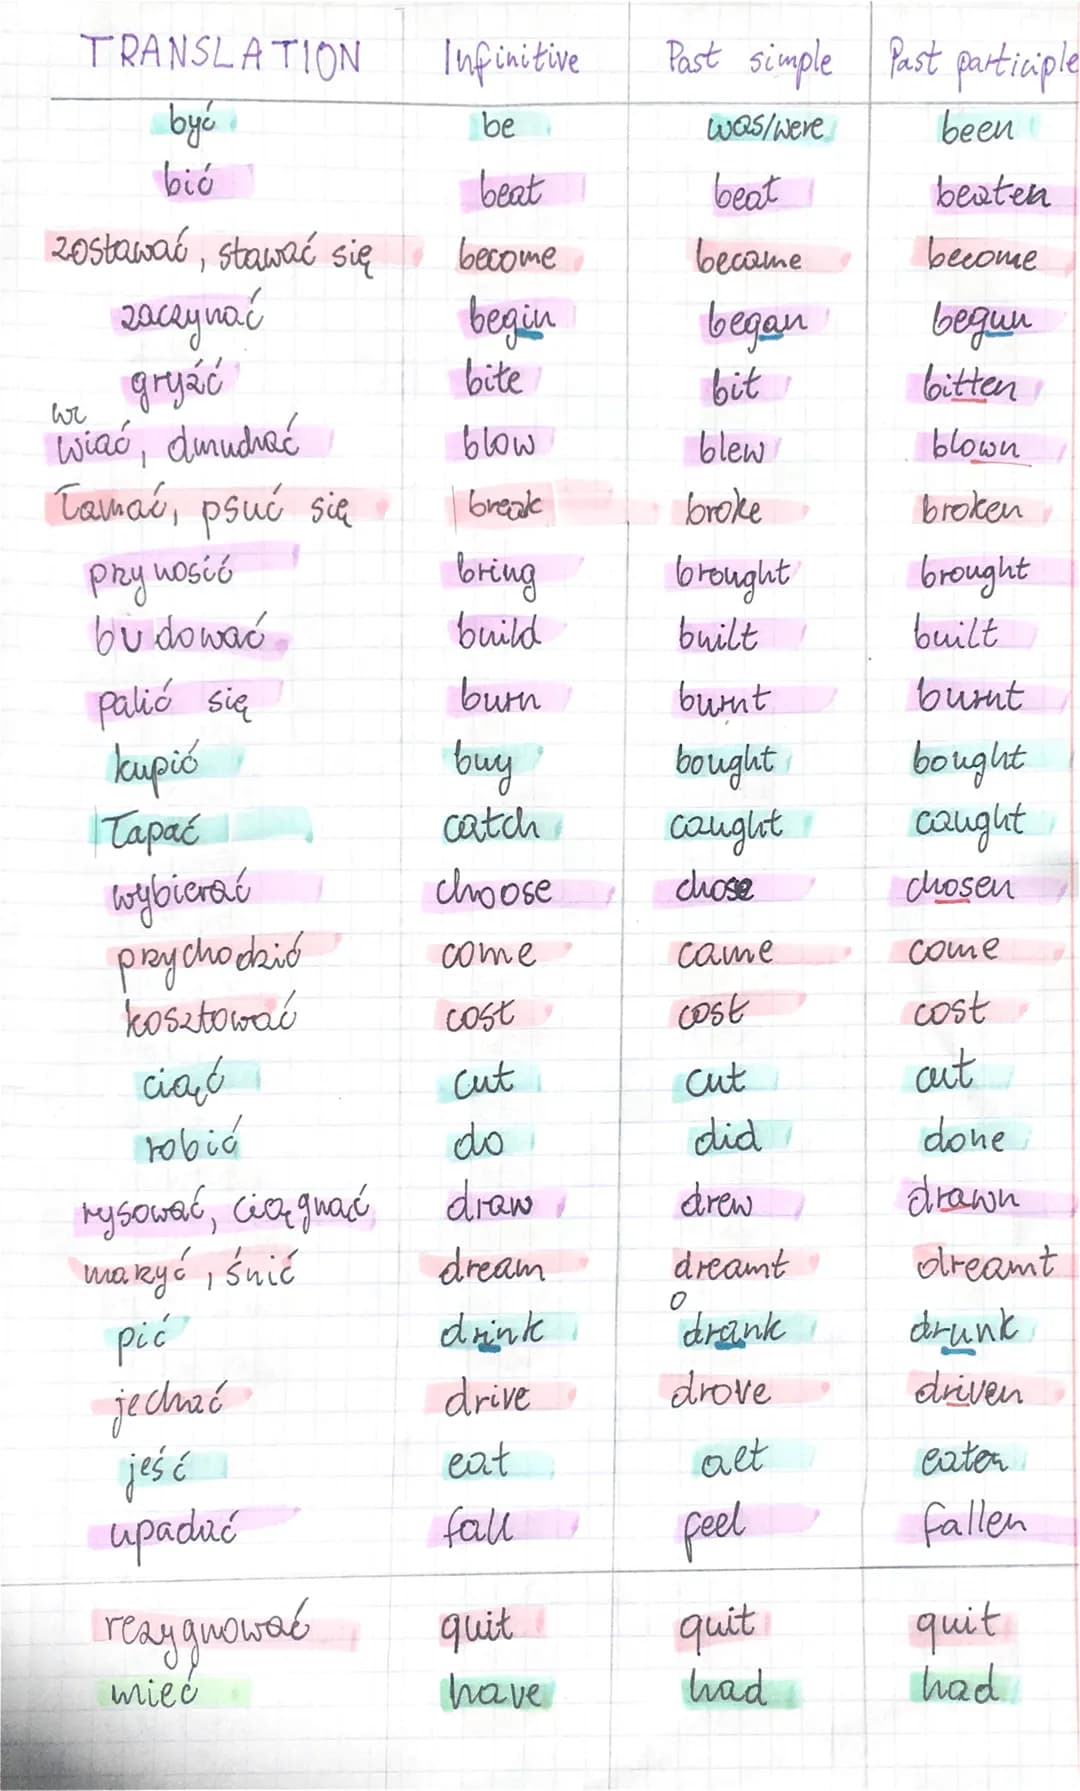 TRANSLATION Infinitive Past simple Past participle
być be was/were been
bić beat beat beaten
zostawać, stawać się become became become
zaczynać begin began begun
gryźć bite bit bitten
wiać, dmuchać blow blew blown
łamać, psuć się break broke broken
przynosić bring brought brought
budować build built built
palić się burn burnt burnt
kupić buy bought bought
łapać catch caught caught
wybierać choose chose chosen
przychodzić come came come
kosztować cost cost cost
ciąć cut cut cut
robić do did done
rysować, ciągnąć draw drew drawn
marzyć, śnić dream dreamt dreamt
o
pić drink drank drunk
jechać drive drove driven
jeść eat aet eaten
upadać fall feel fallen
rezygnować quit quit quit
mieć have had had